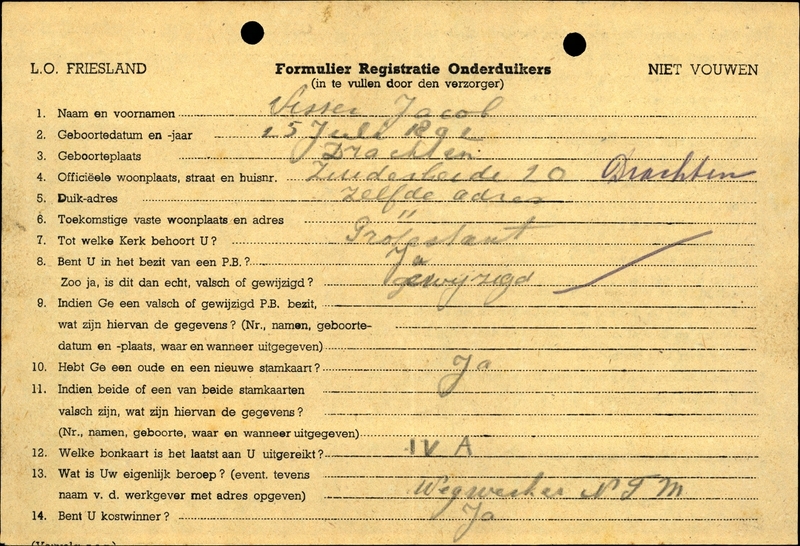 L.O. FRIESLAND Formulier Registratie Onderduikers NIET VOUWEN
(in te vullen door den verzorger)
1. Naam en voornamen Visser Jacob
2. Geboortedatum en -jaar 15 Juli 1891
3. Geboorteplaats Drachten
4. Officiëele woonplaats, straat en huisnr. Zuiderheide 20 Drachten
5. Duik-adres zelfde adres
6. Toekomstige vaste woonplaats en adres "
7. Tot welke Kerk behoort U? Protestant
8. Bent U in het bezit van een P.B.? Ja
Zoo ja, is dit dan echt, valsch of gewijzigd? gewijzigd
9. Indien Ge een valsch of gewijzigd P.B. bezit,
wat zijn hiervan de gegevens? (Nr., namen, geboorte-
datum en -plaats, waar en wanneer uitgegeven)
10. Hebt Ge een oude en een nieuwe stamkaart? Ja
11. Indien beide of een van beide stamkaarten
valsch zijn, wat zijn hiervan de gegevens?
(Nr., namen, geboorte, waar en wanneer uitgegeven)
12. Welke bonkaart is het laatst aan U uitgereikt? IV A
13. Wat is Uw eigenlijk beroep? (event. tevens
naam v. d. werkgever met adres opgeven) Wegwerker N T M
14. Bent U kostwinner? Ja